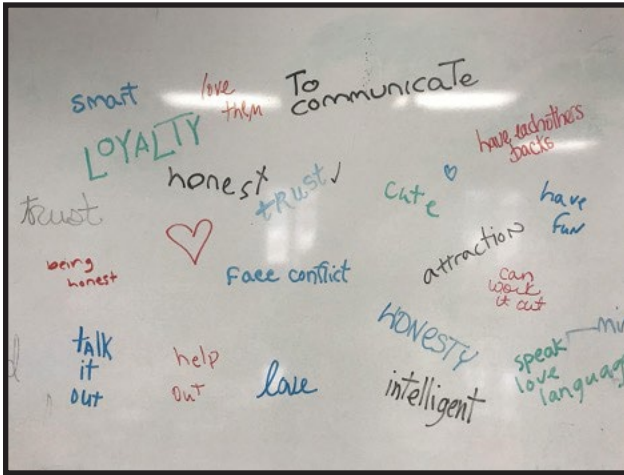 smart
love
them
To
communicate
have eachothers
backs
LOYALTY
honest
trust
cute
have
fun
trust
attraction
being
honest
face conflict
can
work
it out
HONESTY
talk
it
out
help
out
love
intelligent
speak
love
language